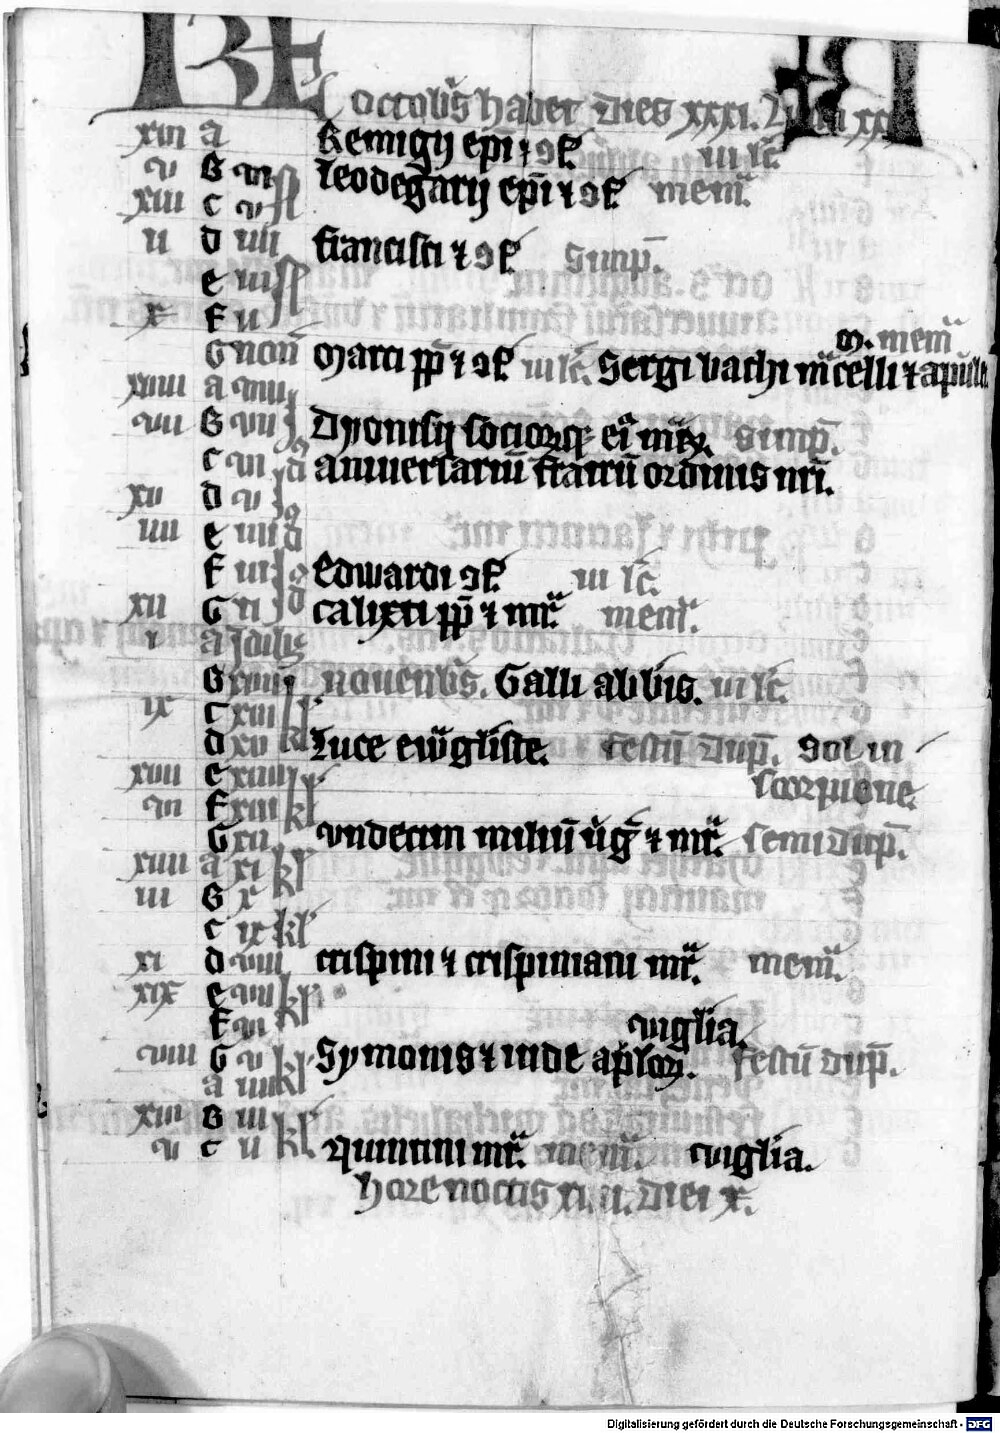 KL octobris habet dies xxxi.
xvi a Remigij epi̅ ⁊ ɔf. iii lc̅.
v b vi Leodegarij epi̅ ⁊ ɔf mem̅.
xiii c v
ii d iiii francisci ⁊ ɔf. Simp̅.
e iii
x f ii
m. mem̅
g non̅ Marci pp̅ ⁊ ɔf iii lc̅. Sergi bachi m̅celli ⁊ apul̅
xviii a viii
vii b vii Dyonisij socior̅q̅ ei̅ m̅r̅. simp̅.
c vi anniversariu̅ fratru̅ ordinis nr̅i.
xv d v
iiii e iiii
f iii Edwardi ɔf. iii lc̅.
xii g ii calixti pp̅ ⁊ mr̅. mem̅.
i a Idus
b xvii novenbris. Galli abbis. iii lc̅.
ix c xvi kl
d xv kl Luce ewa̅gliste. festu̅ dup̅. Sol in
xvii e xiiii scorpione.
vi f xiii kl
g xii undecim miliu̅ v̅g̅ ⁊ mr̅. semi dup̅.
xiiii a xi kl
iii b x
c ix kl
xi d viii crispini ⁊ crispiniani mr̅. mem̅.
xix e vii kl
f vi vigilia.
viii g v kl Symonis ⁊ iude ap̅lor̅. festu̅ dup̅.
a iiii kl
xvi b iii kl
v c ii kl quintini mr̅. mem̅. vigilia.
hore noctis xiiii. diei x.
Digitalisierung gefördert durch die Deutsche Forschungsgemeinschaft - DFG